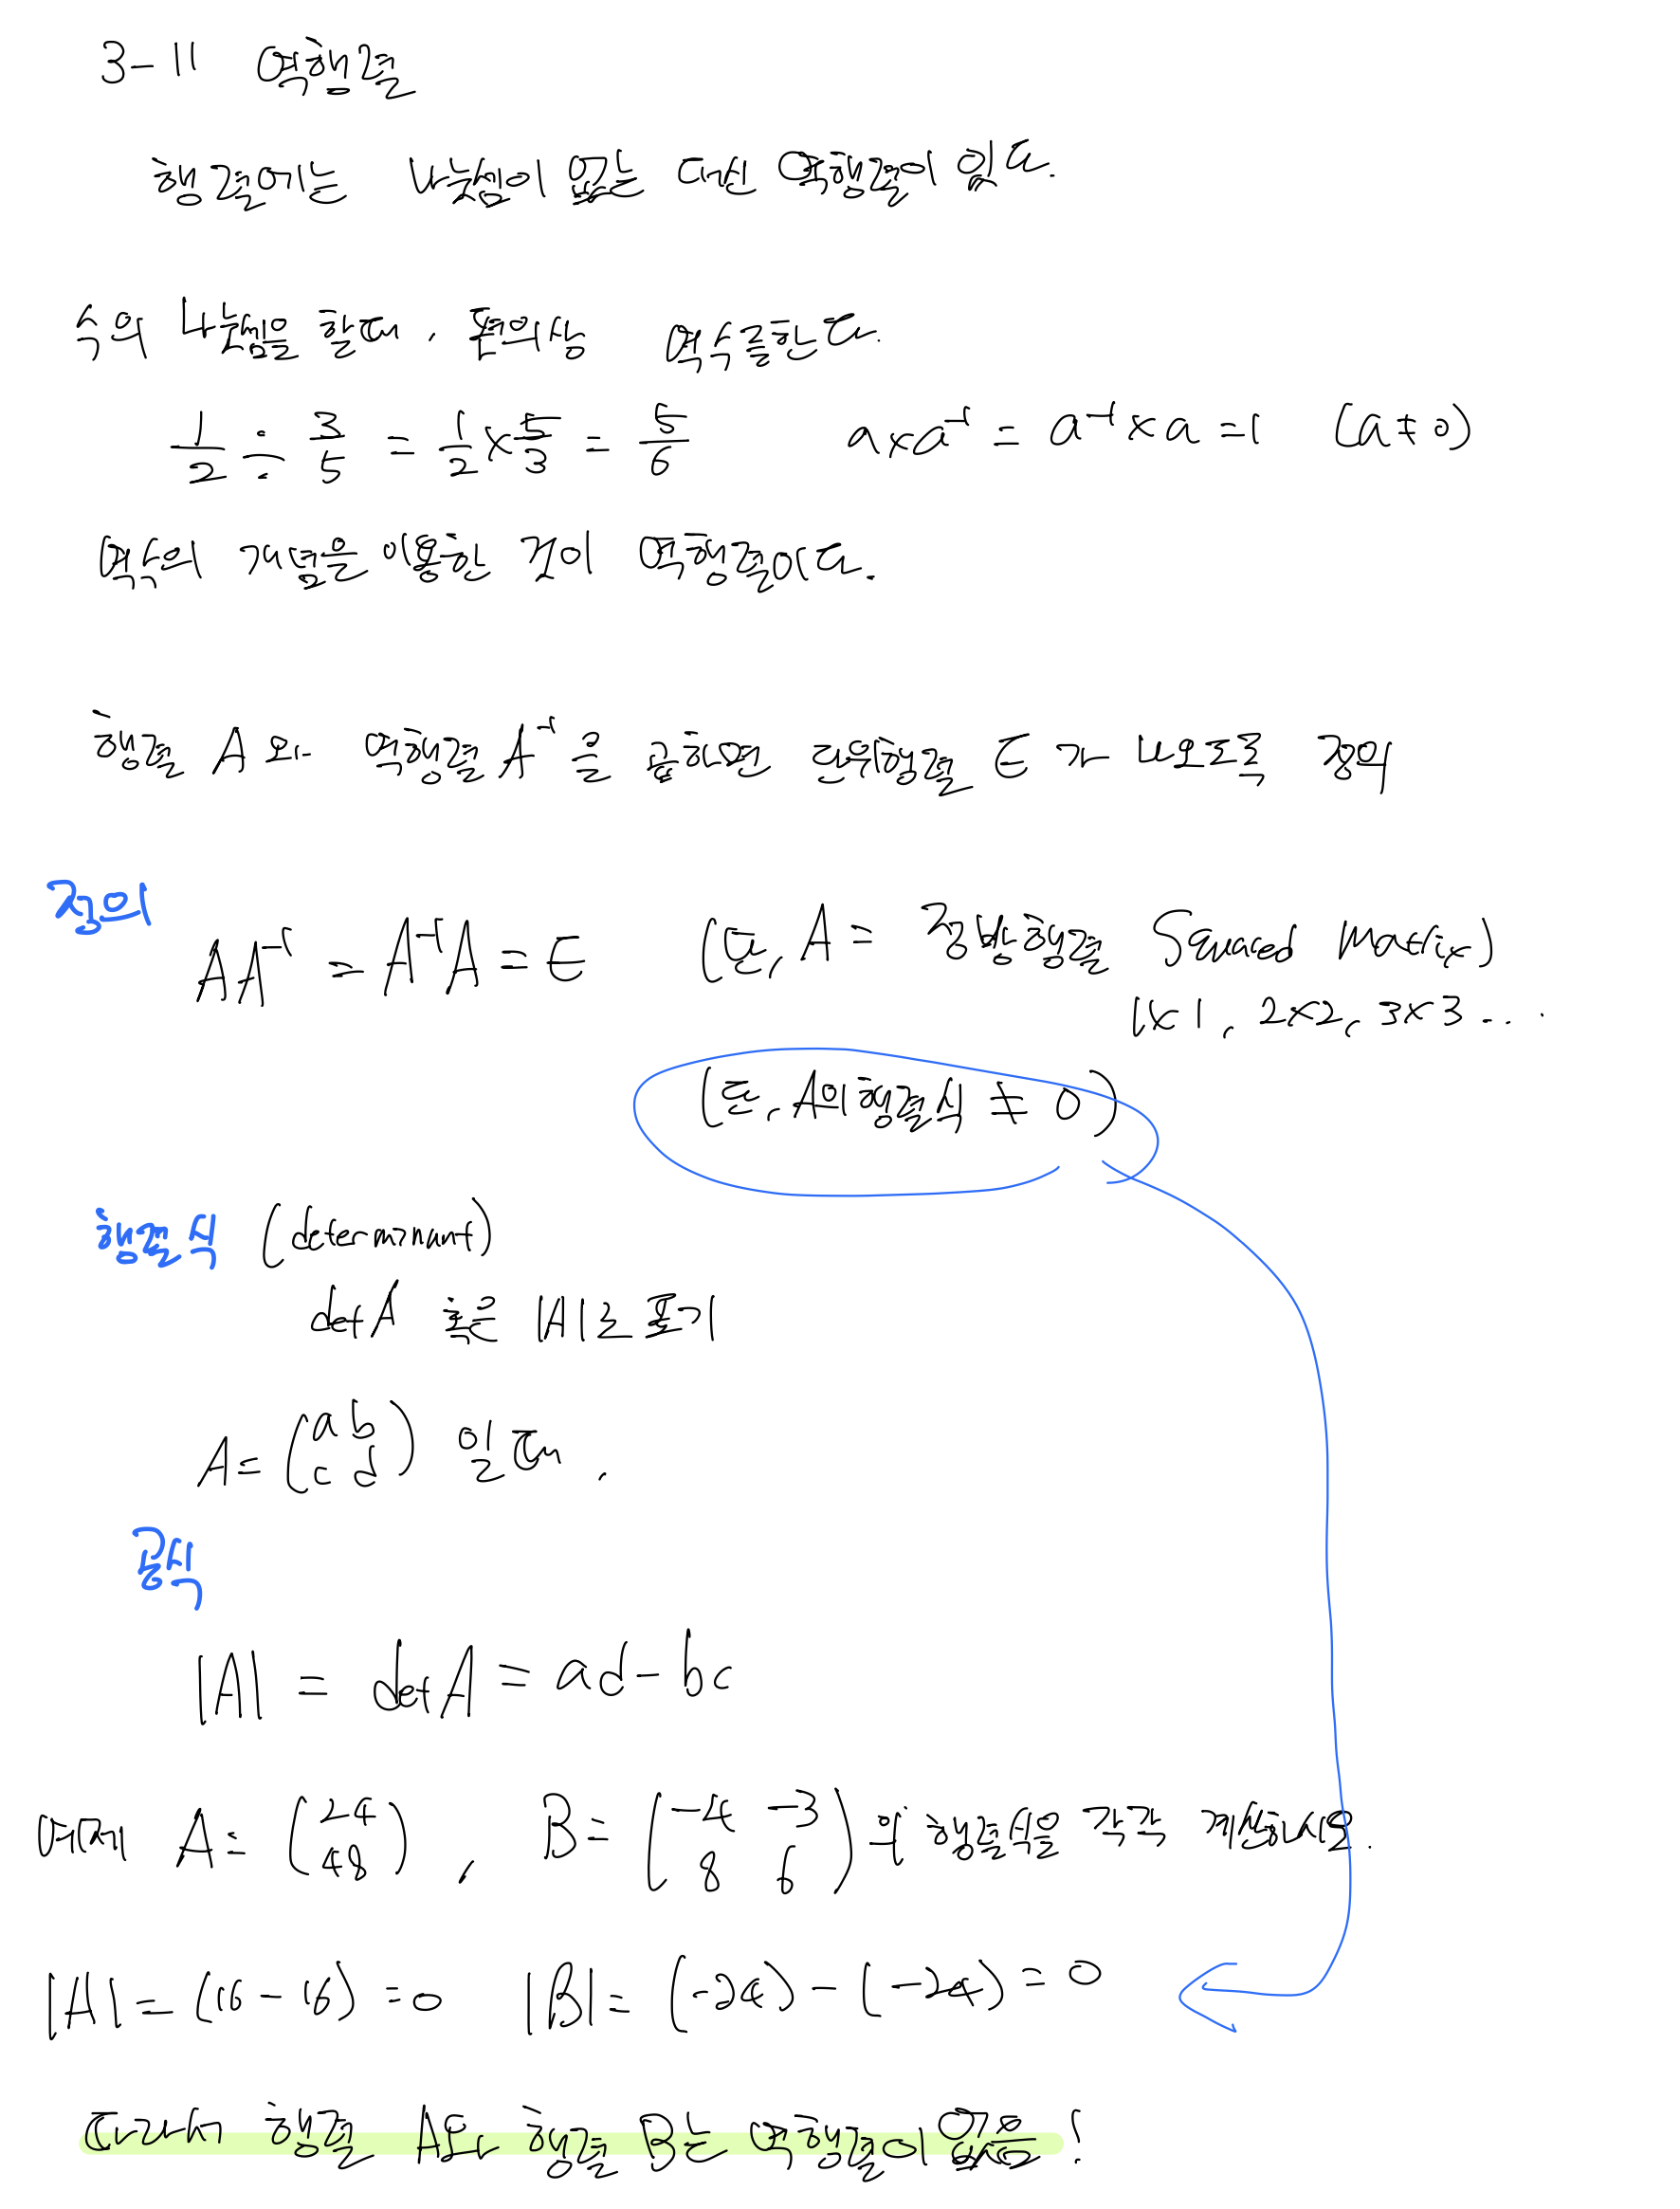 3-11 역행렬
행렬에는 나눗셈이 없는 대신 역행렬이 있다.
수의 나눗셈을 할때, 편의상 역수를한다.
1/2 ÷ 3/5 = 1/2 × 5/3 = 5/6 a×a⁻¹ = a⁻¹×a = 1 (a≠0)
역수의 개념을 이용한 것이 역행렬이다.
행렬 A와 역행렬 A⁻¹을 곱하면 단위행렬 E가 나오도록 정의
정의
AA⁻¹ = A⁻¹A = E (단, A = 정방행렬 Squared Matrix)
1×1, 2×2, 3×3...
(단, A의 행렬식 ≠ 0)
행렬식 (determinant)
det A 혹은 |A|로 표기
A = (a b
c d) 일때,
공식
|A| = det A = ad - bc
예제 A = (2 4
4 8), B = (-4 -3
8 6)의 행렬식을 각각 계산하시오.
|A| = (16-16) = 0 |B| = (-24) - (-24) = 0
따라서 행렬 A와 행렬 B는 역행렬이 없음!